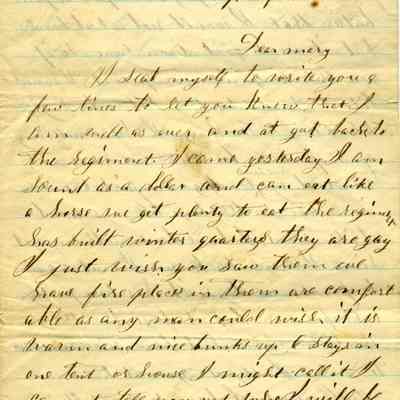 Dear mery
I seat myself to write you a
few lines to let you know that I
am well as ever and at got back to
the regiment I came yesterday I am
Sound as a dollar and can eat like
a horse we get plenty to eat the regiment
has built winter quarters they are gay
I just wish you Saw them we
have fire place in them are comfort
able as any man could wish it is
warm and nice bunks up 6 stays in
one tent or house I might call it I